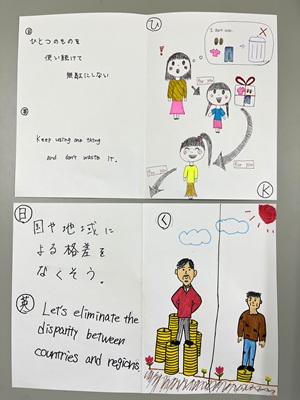 日
ひとつのものを
使い続けて
無駄にしない
英
Keep using one thing
and don't waste it.
ひ
I don't use...
For you
For you
For you
K
日
国や地域に
よる格差を
なくそう。
英
Let's eliminate the
disparity between
countries and regions
く